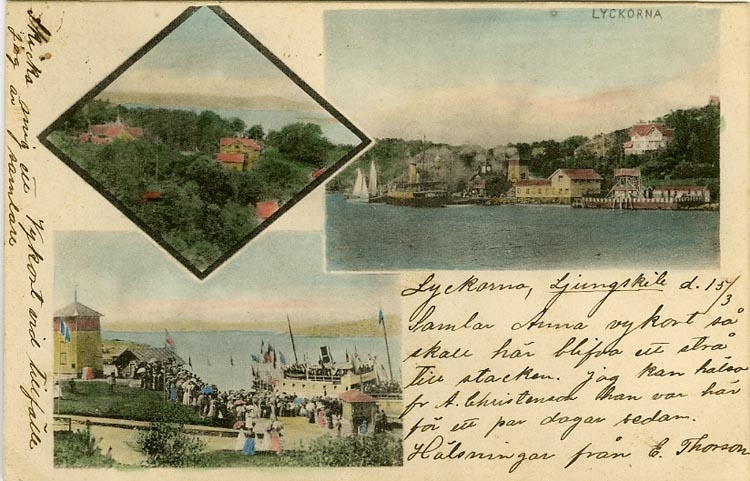 LYCKORNA
Lyckorna, Ljungskile d. 15/3
Samlar Anna vykort så
skall här blifva ett strå
till stacken. jag kan hälsa
fr A. Christenson han var här
för ett par dagar sedan.
Hälsningar från E. Thorson
Skicka mig ett Vykort vid tillfälle
jag är samlare